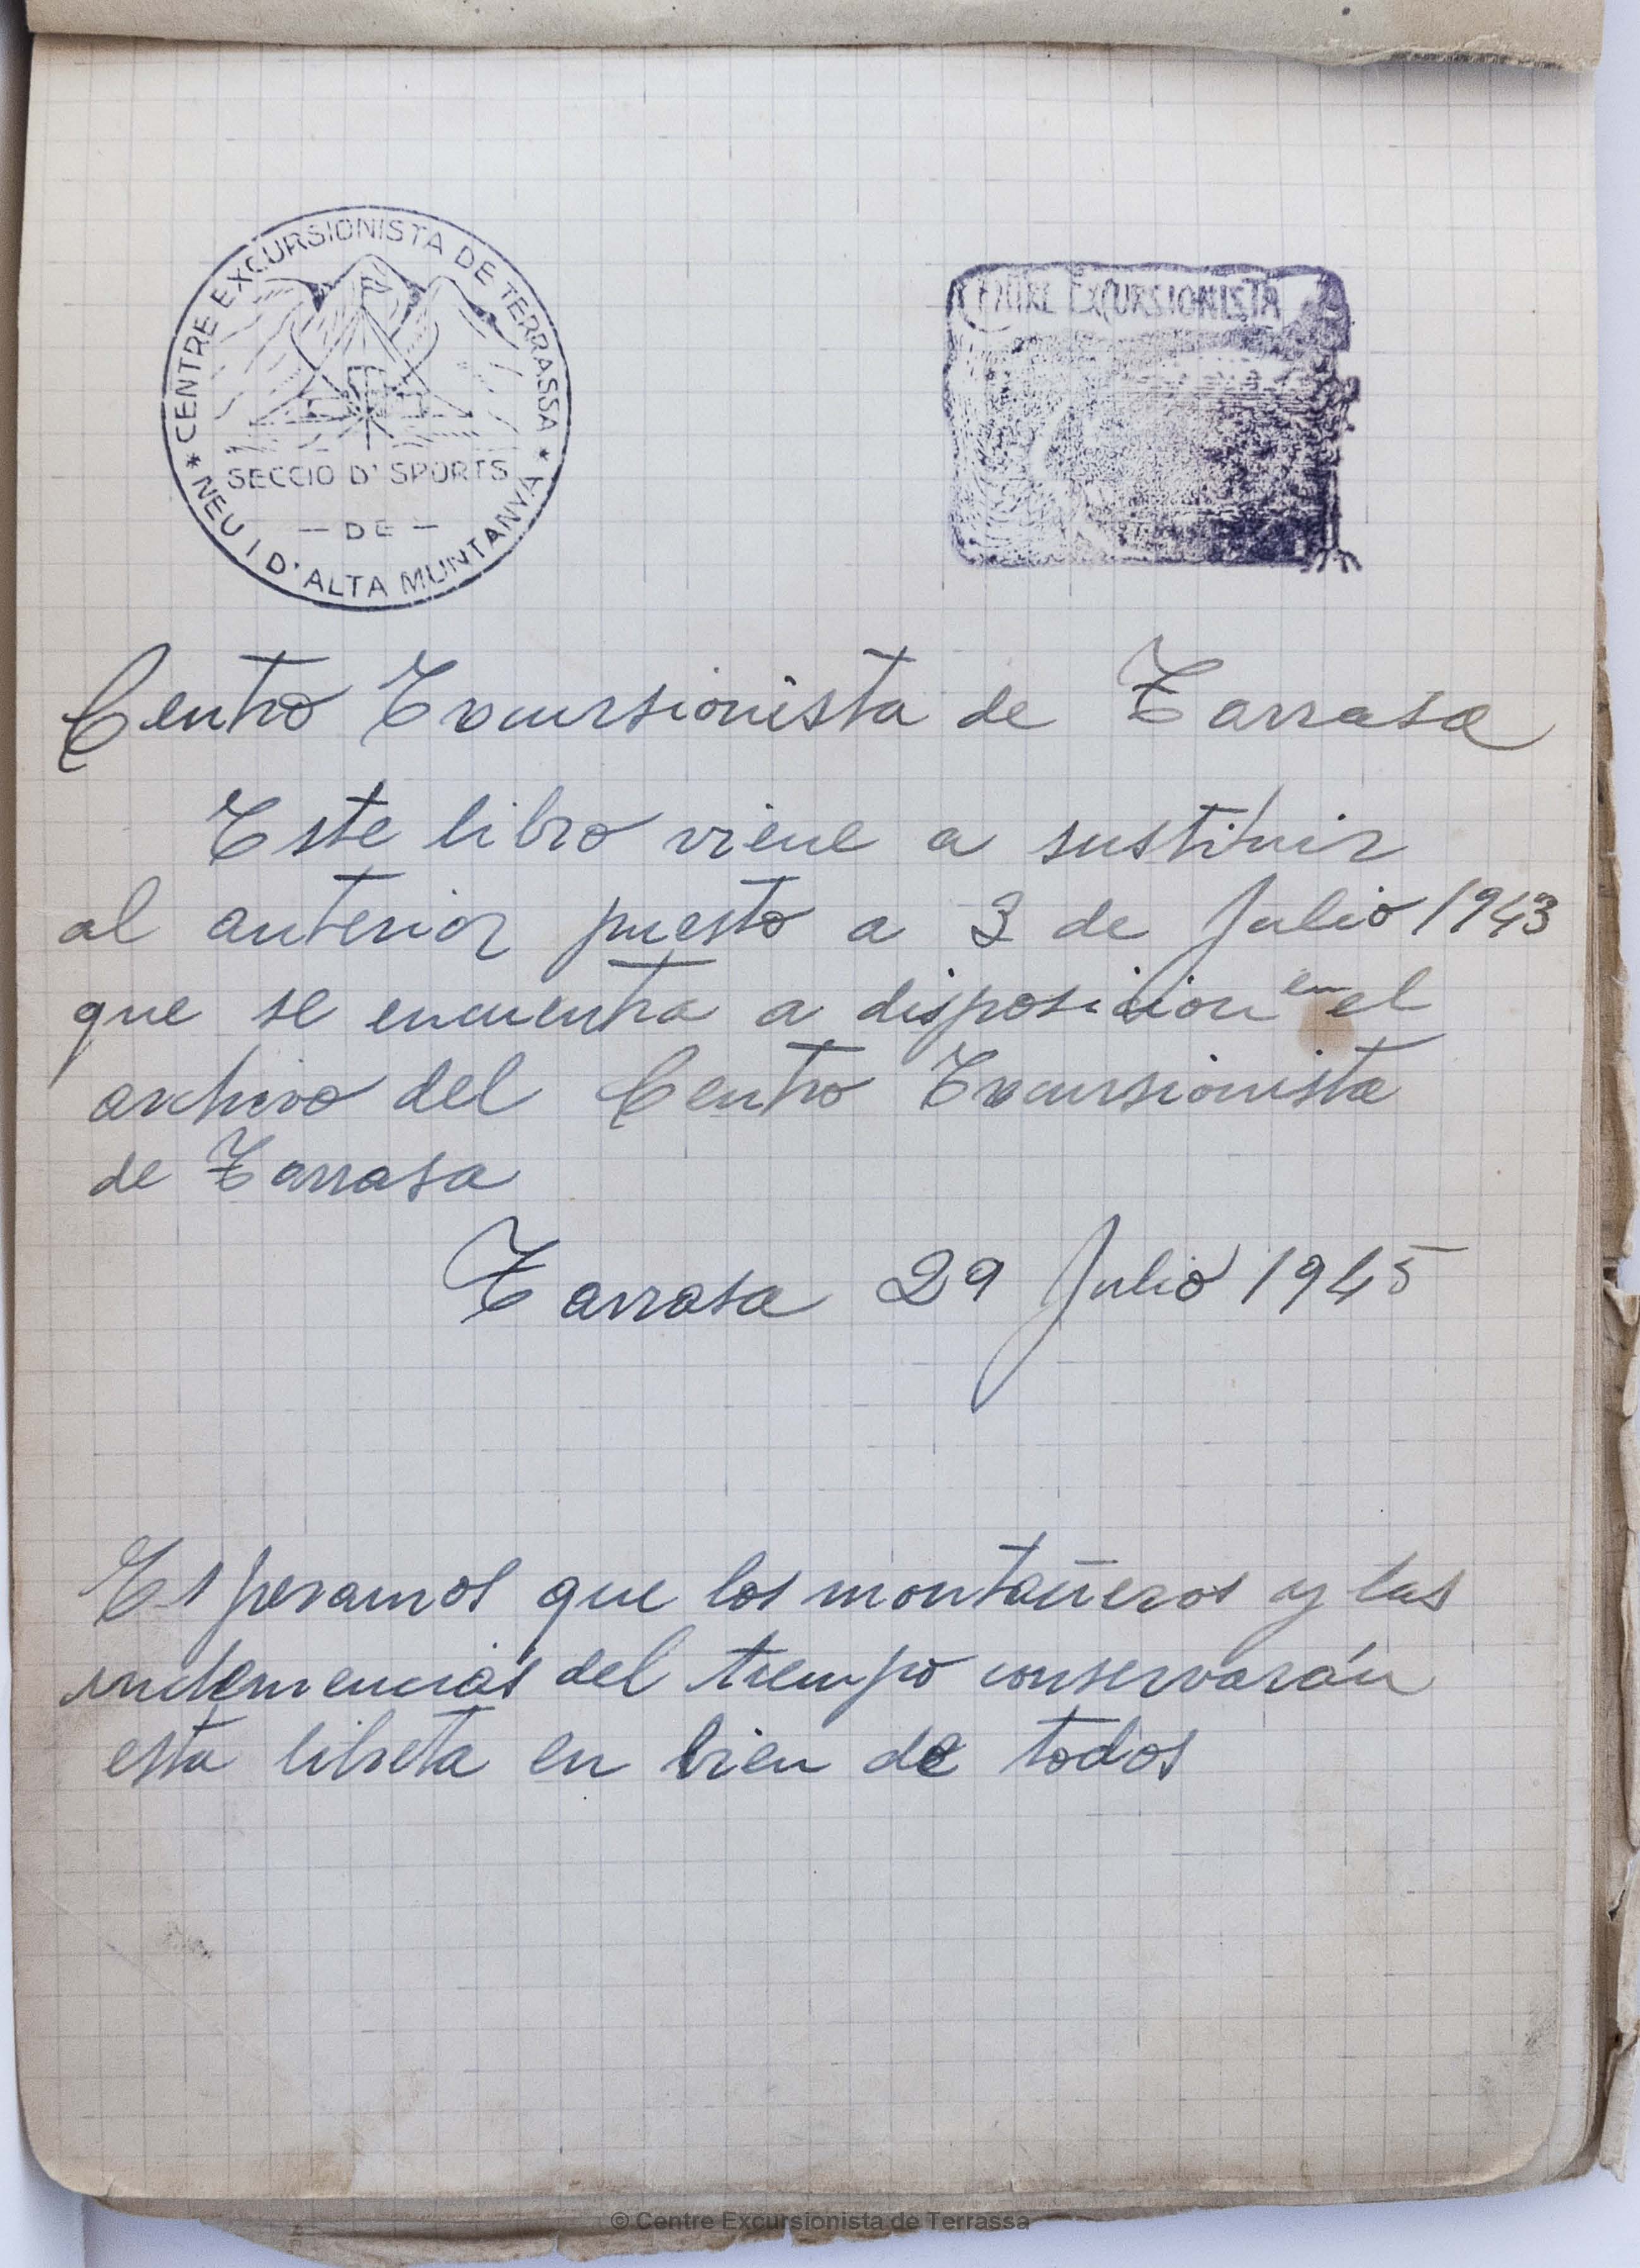 * CENTRE EXCURSIONISTA DE TERRASSA *
SECCIO D'SPORTS
— DE —
NEU I D'ALTA MUNTANYA
CENTRE EXCURSIONISTA
Centro Excursionista de Tarrasa
Este libro viene a sustituir
al anterior puesto a 3 de Julio 1943
que se encuentra a disposicion en el
archivo del Centro Excursionista
de Tarrasa
Tarrasa 29 Julio 1945
Esperamos que los montañeros y las
inclemencias del tiempo conservarán
esta libreta en bien de todos
© Centre Excursionista de Terrassa